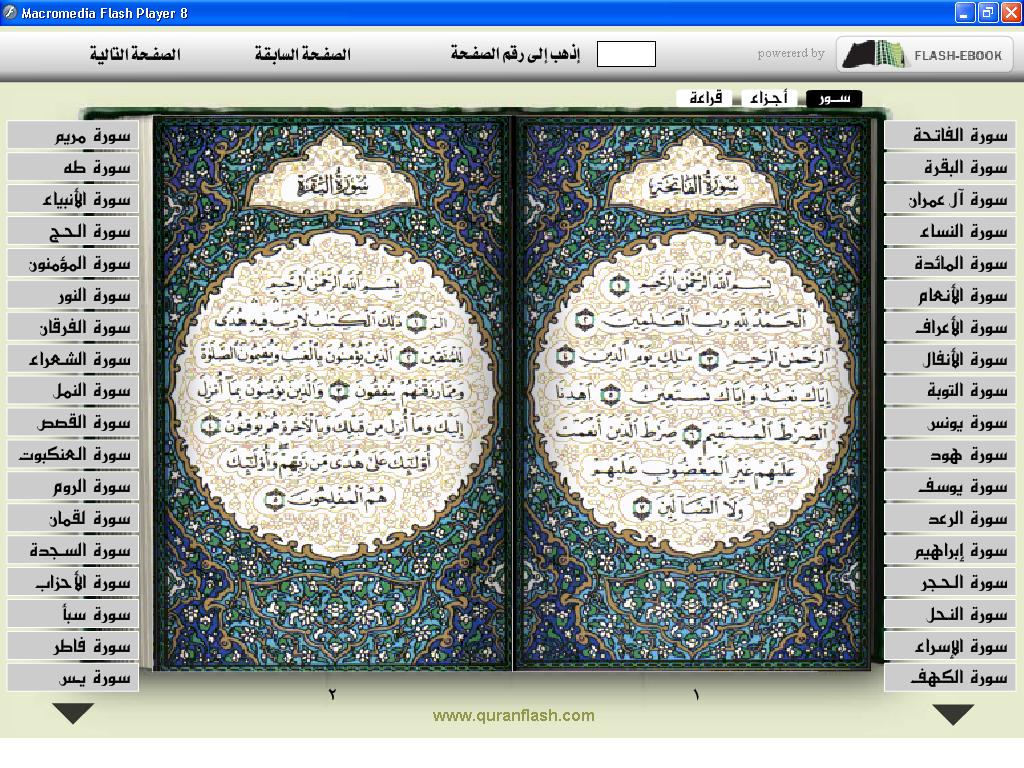 Macromedia Flash Player 8
إذهب إلى رقم الصفحة
الصفحة السابقة
الصفحة التالية
powererd by
FLASH-EBOOK
سـور
أجـزاء
قراءة
سورة الفاتحة
سورة البقرة
سورة آل عمران
سورة النساء
سورة المائدة
سورة الأنعام
سورة الأعراف
سورة الأنفال
سورة التوبة
سورة يونس
سورة هود
سورة يوسف
سورة الرعد
سورة إبراهيم
سورة الحجر
سورة النحل
سورة الإسراء
سورة الكهف
سُورَةُ الفَاتِحَةِ
بِسْمِ اللَّهِ الرَّحْمَٰنِ الرَّحِيمِ ١
الْحَمْدُ لِلَّهِ رَبِّ الْعَٰلَمِينَ ٢
الرَّحْمَٰنِ الرَّحِيمِ ٣ مَٰلِكِ يَوْمِ الدِّينِ ٤
إِيَّاكَ نَعْبُدُ وَإِيَّاكَ نَسْتَعِينُ ٥ اهْدِنَا
الصِّرَٰطَ الْمُسْتَقِيمَ ٦ صِرَٰطَ الَّذِينَ أَنْعَمْتَ
عَلَيْهِمْ غَيْرِ الْمَغْضُوبِ عَلَيْهِمْ
وَلَا الضَّآلِّينَ ٧
١
سُورَةُ البَقَرَةِ
بِسْمِ اللَّهِ الرَّحْمَٰنِ الرَّحِيمِ
الٓمٓ ١ ذَٰلِكَ الْكِتَٰبُ لَا رَيْبَ فِيهِ هُدًى
لِّلْمُتَّقِينَ ٢ الَّذِينَ يُؤْمِنُونَ بِالْغَيْبِ وَيُقِيمُونَ الصَّلَوٰةَ
وَمِمَّا رَزَقْنَٰهُمْ يُنفِقُونَ ٣ وَالَّذِينَ يُؤْمِنُونَ بِمَآ أُنزِلَ
إِلَيْكَ وَمَآ أُنزِلَ مِن قَبْلِكَ وَبِالْءَاخِرَةِ هُمْ يُوقِنُونَ ٤
أُو۟لَٰٓئِكَ عَلَىٰ هُدًى مِّن رَّبِّهِمْ وَأُو۟لَٰٓئِكَ
هُمُ الْمُفْلِحُونَ ٥
٢
سورة مريم
سورة طه
سورة الأنبياء
سورة الحج
سورة المؤمنون
سورة النور
سورة الفرقان
سورة الشعراء
سورة النمل
سورة القصص
سورة العنكبوت
سورة الروم
سورة لقمان
سورة السجدة
سورة الأحزاب
سورة سبأ
سورة فاطر
سورة يـس
www.quranflash.com